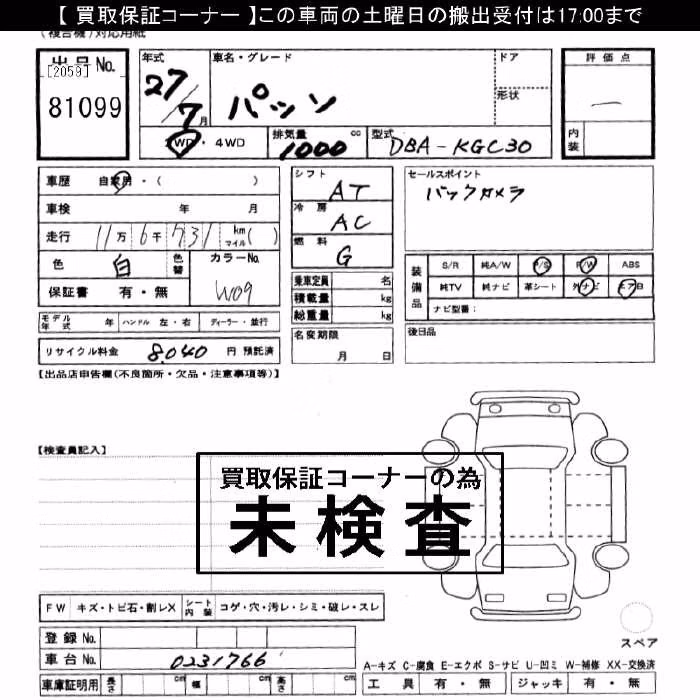 【 買取保証コーナー 】この車両の土曜日の搬出受付は17:00まで
(複合機)対応用紙
出品No.
[2059]
81099
年式 27/7月
車名・グレード パッソ
ドア
形状
評価点 一
内装
2WD・4WD
排気量 1000 cc
型式 DBA-KGC30
車歴 自家用・( )
車検 年 月
走行 11万6千731 km マイル( )
色 白 色替
カラーNo. W09
保証書 有・無
シフト AT
冷房 AC
燃料 G
乗車定員 名
積載量 kg
総重量 kg
セールスポイント
バックカメラ
装備品
S/R 純A/W P/S P/W ABS
純TV 純ナビ 革シート 外ナビ エアB
ナビ型番:
モデル年式 年 ハンドル 左・右 ディーラー・並行
リサイクル料金 8,040 円 預託済
名変期限 月 日
後日品
【出品店申告欄(不良箇所・欠品・注意事項等)】
【検査員記入】
買取保証コーナーの為
未検査
FW キズ・トビ石・割レX シート内装 コゲ・穴・汚レ・シミ・破レ・スレ
登録No.
車台No. 0231766
車庫証明用 長さ cm 幅 cm 高さ cm
スペア
A-キズ C-腐食 E-エクボ S-サビ U-凹ミ W-補修 XX-交換済
工具 有・無 ジャッキ 有・無